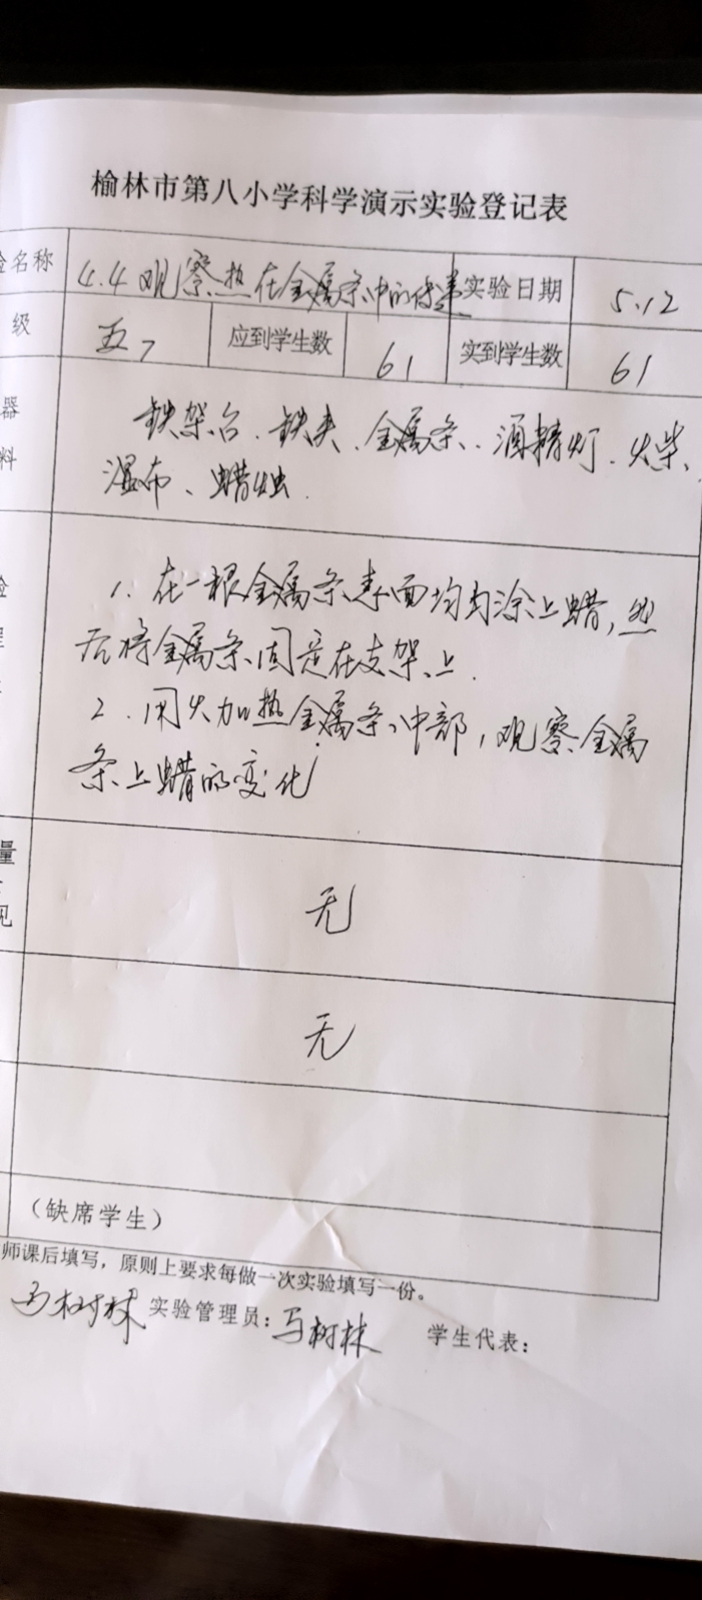 榆林市第八小学科学演示实验登记表
验名称 4.4 观察热在金属条中的传递 实验日期 5.12
级 五7 应到学生数 61 实到学生数 61
器 铁架台、铁夹、金属条、酒精灯、火柴、
料 湿布、蜡烛.
验 1. 在一根金属条表面均匀涂上蜡,然
后将金属条固定在支架上.
2. 用火加热金属条中部,观察金属
条上蜡的变化
量
见 无
无
(缺席学生)
师课后填写,原则上要求每做一次实验填写一份。
马树林 实验管理员: 马树林 学生代表: